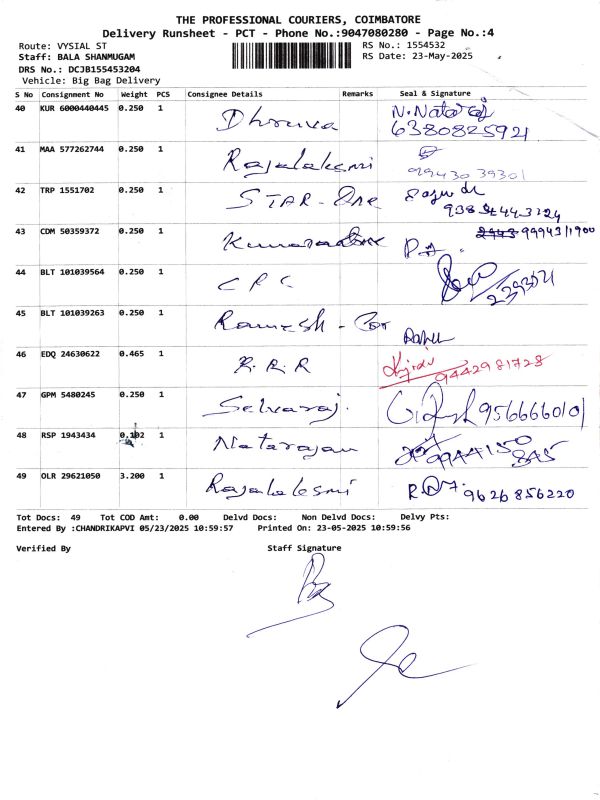 THE PROFESSIONAL COURIERS, COIMBATORE
Delivery Runsheet - PCT - Phone No.:9047080280 - Page No.:4
Route: VYSIAL ST
RS No.: 1554532
Staff: BALA SHANMUGAM
RS Date: 23-May-2025
DRS No.: DCJB155453204
Vehicle: Big Bag Delivery
S No Consignment No Weight PCS Consignee Details Remarks Seal & Signature
40 KUR 6000440445 0.250 1 Dhruva N. Nataraj
6380825921
41 MAA 577262744 0.250 1 Rajalakesmi
9943039301
42 TRP 1551702 0.250 1 STAR-One
43 CDM 50359372 0.250 1
44 BLT 101039564 0.250 1
45 BLT 101039263 0.250 1 Ramesh -
46 EDQ 24630622 0.465 1 R.R.R
9442981728
47 GPM 5480245 0.250 1 Selvaraj. 9566660101
48 RSP 1943434 0.102 1 Natarajan 9944150
845
49 OLR 29621050 3.200 1 Rajalakesmi 9626856220
Tot Docs: 49 Tot COD Amt: 0.00 Delvd Docs: Non Delvd Docs: Delvy Pts:
Entered By :CHANDRIKAPVI 05/23/2025 10:59:57 Printed On: 23-05-2025 10:59:56
Verified By Staff Signature